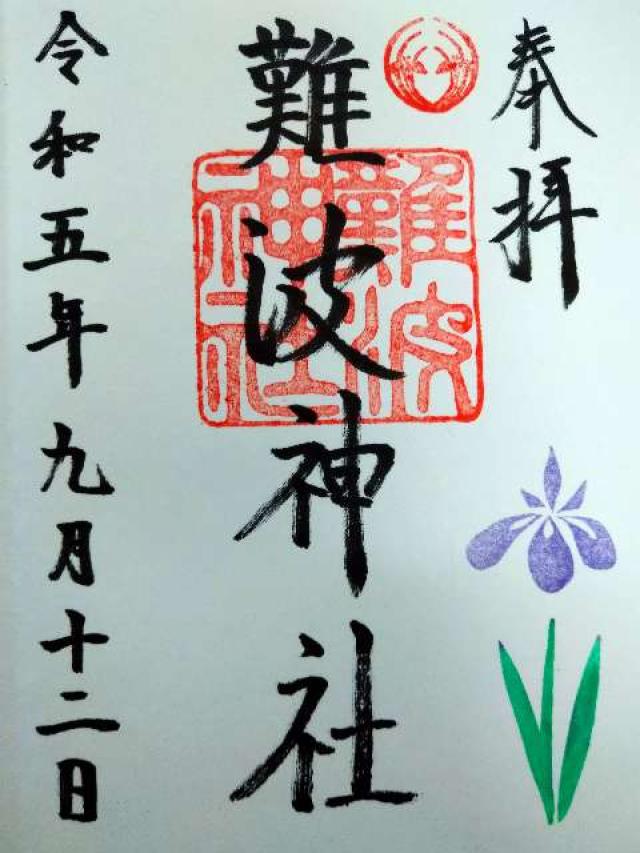 奉拝
難波神社
難波
神社
令和五年九月十二日